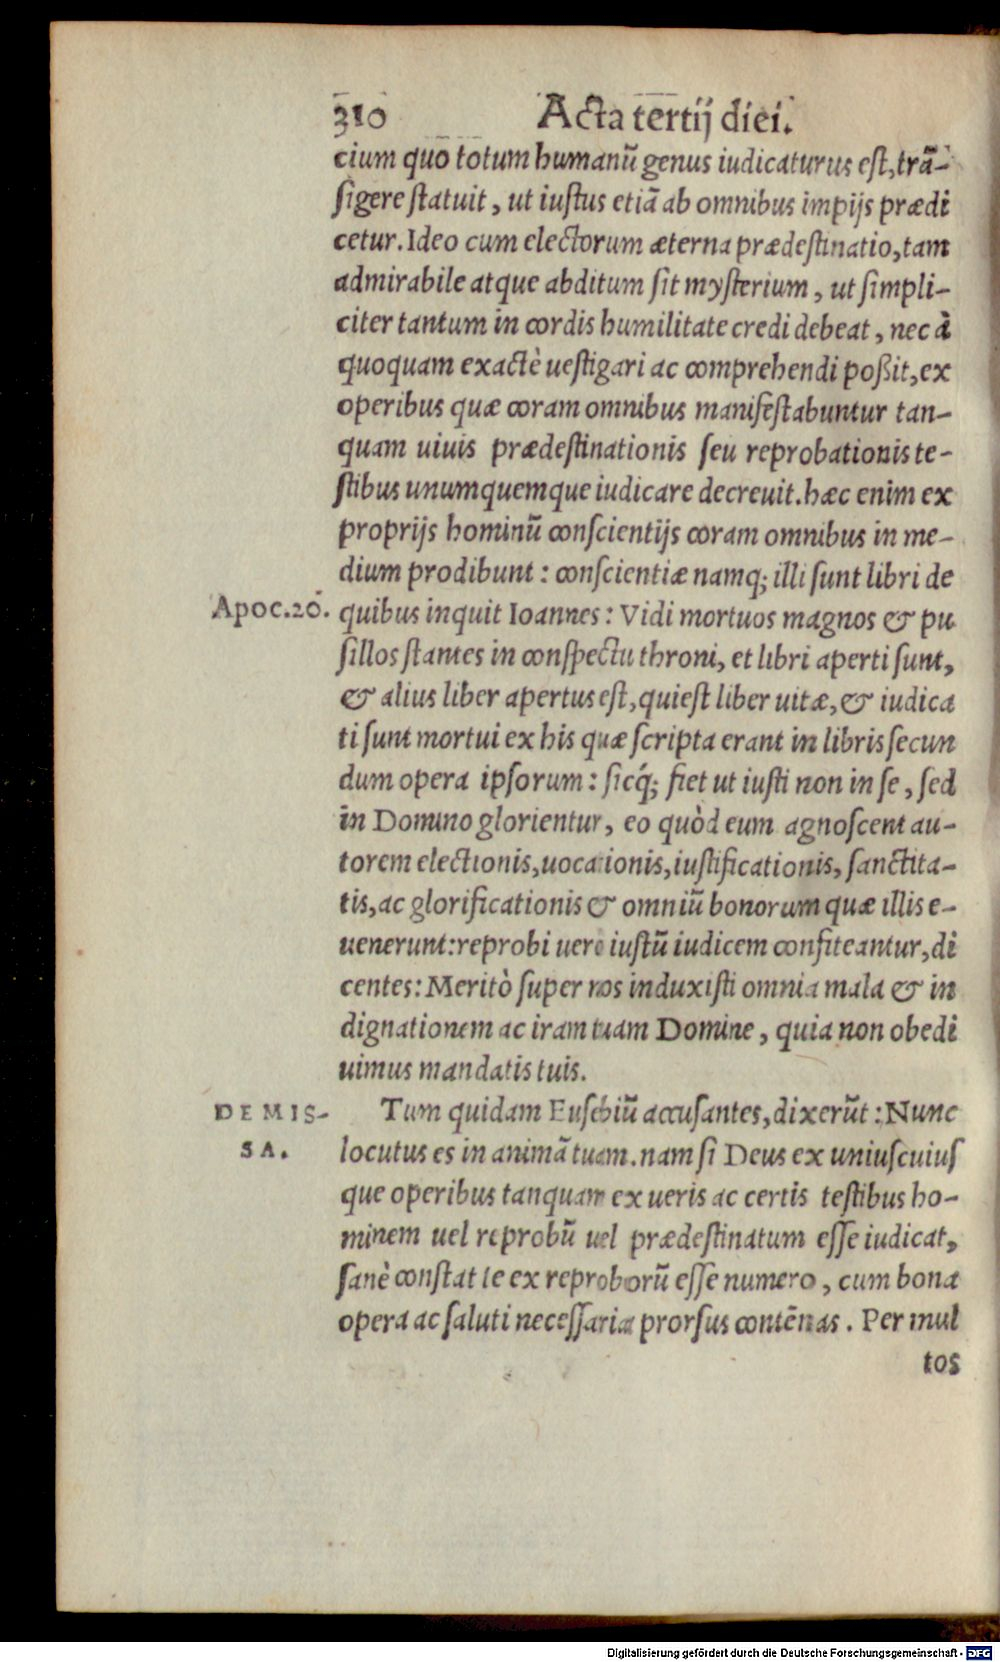 310 Acta tertij diei.
cium quo totum humanū genus iudicaturus est, trā-
sigere statuit, ut iustus etiā ab omnibus impijs prædi
cetur. Ideo cum electorum æterna prædestinatio, tam
admirabile atque abditum sit mysterium, ut simpli-
citer tantum in cordis humilitate credi debeat, nec à
quoquam exactè uestigari ac comprehendi poßit, ex
operibus quæ coram omnibus manifestabuntur tan-
quam uiuis prædestinationis seu reprobationis te-
stibus unumquemque iudicare decreuit. hæc enim ex
proprijs hominū conscientijs coram omnibus in me-
dium prodibunt: conscientiæ namq; illi sunt libri de
Apoc.20. quibus inquit Ioannes: Vidi mortuos magnos & pu
sillos stantes in conspectu throni, et libri aperti sunt,
& alius liber apertus est, qui est liber uitæ, & iudica
ti sunt mortui ex his quæ scripta erant in libris secun
dum opera ipsorum: sicq́; fiet ut iusti non in se, sed
in Domino glorientur, eo quòd eum agnoscent au-
torem electionis, uocationis, iustificationis, sanctita-
tis, ac glorificationis & omniū bonorum quæ illis e-
uenerunt: reprobi uero iustū iudicem confiteantur, di
centes: Meritò super nos induxisti omnia mala & in
dignationem ac iram tuam Domine, quia non obedi
uimus mandatis tuis.
DEMIS- Tum quidam Eusebiū accusantes, dixerūt: Nunc
SA. locutus es in animā tuam. nam si Deus ex uniuscuius
que operibus tanquam ex ueris ac certis testibus ho-
minem uel reprobū uel prædestinatum esse iudicat,
sanè constat te ex reproborū esse numero, cum bona
opera ac saluti necessaria prorsus contēnas. Per mul
tos
Digitalisierung gefördert durch die Deutsche Forschungsgemeinschaft - DFG